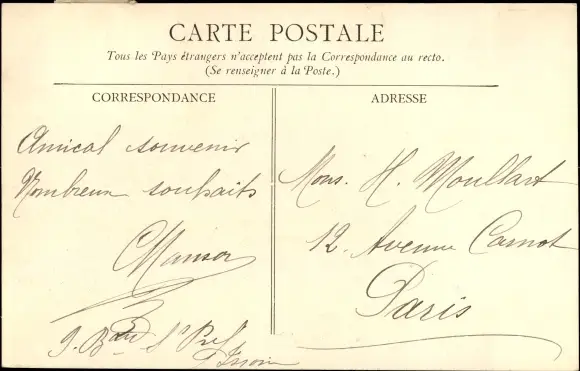 CARTE POSTALE
Tous les Pays étrangers n'acceptent pas la Correspondance au recto.
(Se renseigner à la Poste.)
CORRESPONDANCE
ADRESSE
Amical souvenir
Nombreux souhaits
Mons. H. Moullart
12. Avenue Carnot
Paris
9. Bard St